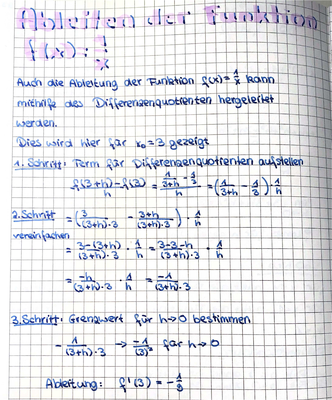 Ableiten der Funktion
f(x) = 1/x
Auch die Ableitung der Funktion f(x) = 1/x kann
mithilfe des Differenzenquotienten hergeleitet
werden.
Dies wird hier für x₀ = 3 gezeigt
1. Schritt: Term für Differenzenquotienten aufstellen
(f(3+h) - f(3))/h = (1/(3+h) - 1/3)/h = (1/(3+h) - 1/3) · 1/h
2. Schritt = (3/((3+h)·3) - (3+h)/((3+h)·3)) · 1/h
vereinfachen
= (3-(3+h))/((3+h)·3) · 1/h = (3-3-h)/((3+h)·3) · 1/h
= -h/((3+h)·3) · 1/h = -1/((3+h)·3)
3. Schritt: Grenzwert für h→0 bestimmen
- 1/((3+h)·3) → -1/(3)² für h→0
Ableitung: f'(3) = -1/9